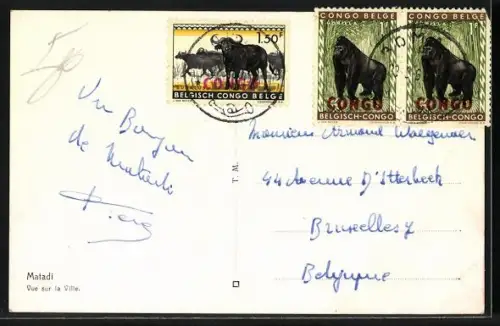 1.50
CONGO
BELGISCH-CONGO BELGE
CONGO BELGE
1F
CONGO
BELGISCH-CONGO
CONGO BELGE
1F
CONGO
BELGISCH-CONGO
Un Bonjour
de Matadi
T. M.
Monsieur Armand Waegeneer
44 Avenue D'Itterbeek
Bruxelles 7
Belgique
Matadi
Vue sur la Ville.